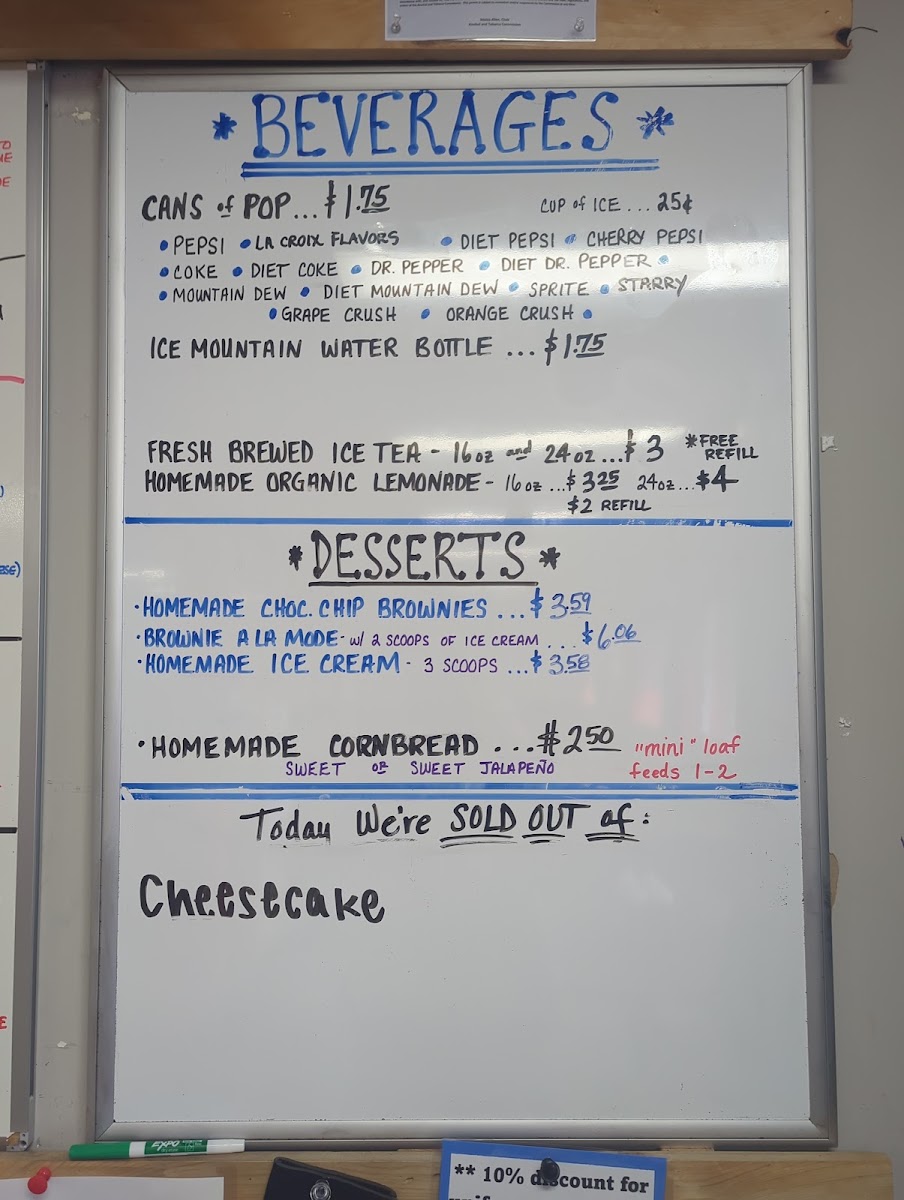 * BEVERAGES *
CANS of POP...$1.75 CUP of ICE...25¢
• PEPSI • LA CROIX FLAVORS • DIET PEPSI • CHERRY PEPSI
• COKE • DIET COKE • DR. PEPPER • DIET DR. PEPPER •
• MOUNTAIN DEW • DIET MOUNTAIN DEW • SPRITE • STARRY
• GRAPE CRUSH • ORANGE CRUSH •
ICE MOUNTAIN WATER BOTTLE ... $1.75
FRESH BREWED ICE TEA - 16oz and 24oz...$3 *FREE REFILL
HOMEMADE ORGANIC LEMONADE - 16oz...$3.25 24oz...$4
$2 REFILL
* DESSERTS *
· HOMEMADE CHOC. CHIP BROWNIES ...$3.59
· BROWNIE A LA MODE - w/ 2 SCOOPS OF ICE CREAM ... $6.06
· HOMEMADE ICE CREAM - 3 SCOOPS ...$3.58
· HOMEMADE CORNBREAD ...$2.50 "mini" loaf
SWEET OR SWEET JALAPEÑO feeds 1-2
Today We're SOLD OUT of:
Cheesecake
EXPO
** 10% discount for